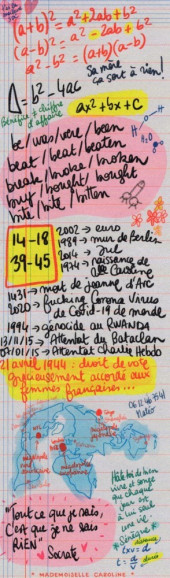 (a+b)² = a²+2ab+b²
(a-b)² = a²-2ab+b²
a²-b² = (a+b)(a-b)
Sa mère
ça sert à rien!
Δ = b²-4ac
Bénéfice ≠ chiffre
d'affaire
ax²+bx+c
be/was/were/been
beat/beat/beaten
break/broke/broken
buy/bought/bought
bite/bite/bitten
14-18
39-45
2002 → euro
1989 → mur de Berlin
2014 →
1974 → naissance de
Caroline
1431 → mort de Jeanne d'Arc
2020 → fucking Corona Virus
de Covid-19 de monde
1994 → génocide au RWANDA
13/11/15 → Attentat du Bataclan
07/01/15 → Attentat Charlie Hebdo
21 avril 1944 : droit de vote
généreusement accordé aux
femmes françaises...
Hâte-toi de bien
vivre et songe
que chaque
jour est
à lui seul
une vie.
Sénèque
"Tout ce que je sais,
c'est que je ne sais
RIEN"
Socrate
distance
txv = d
t = d/v
MADEMOISELLE CAROLINE